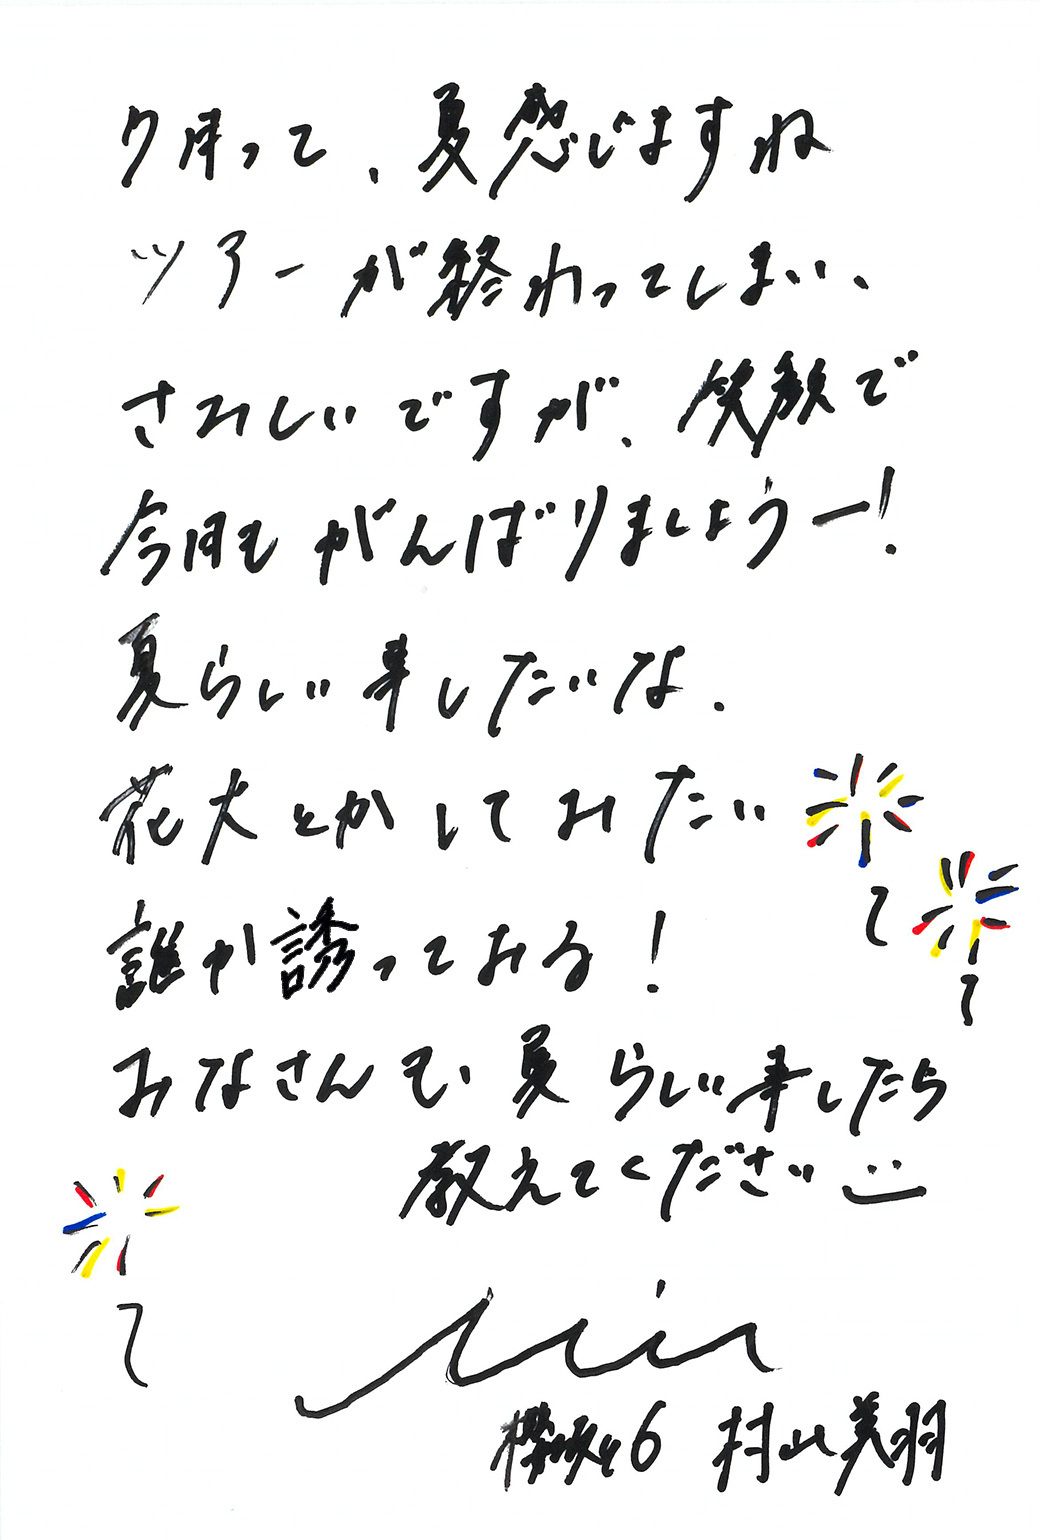 7月って、夏感じますね
ツアーが終わってしまい、
さみしいですが、笑顔で
今月もがんばりましょうー!
夏らしい事したいな.
花火とかしてみたい
誰か誘ってみる!
みなさんも夏らしい事したら
教えてください
Miu
櫻坂46 村山美羽